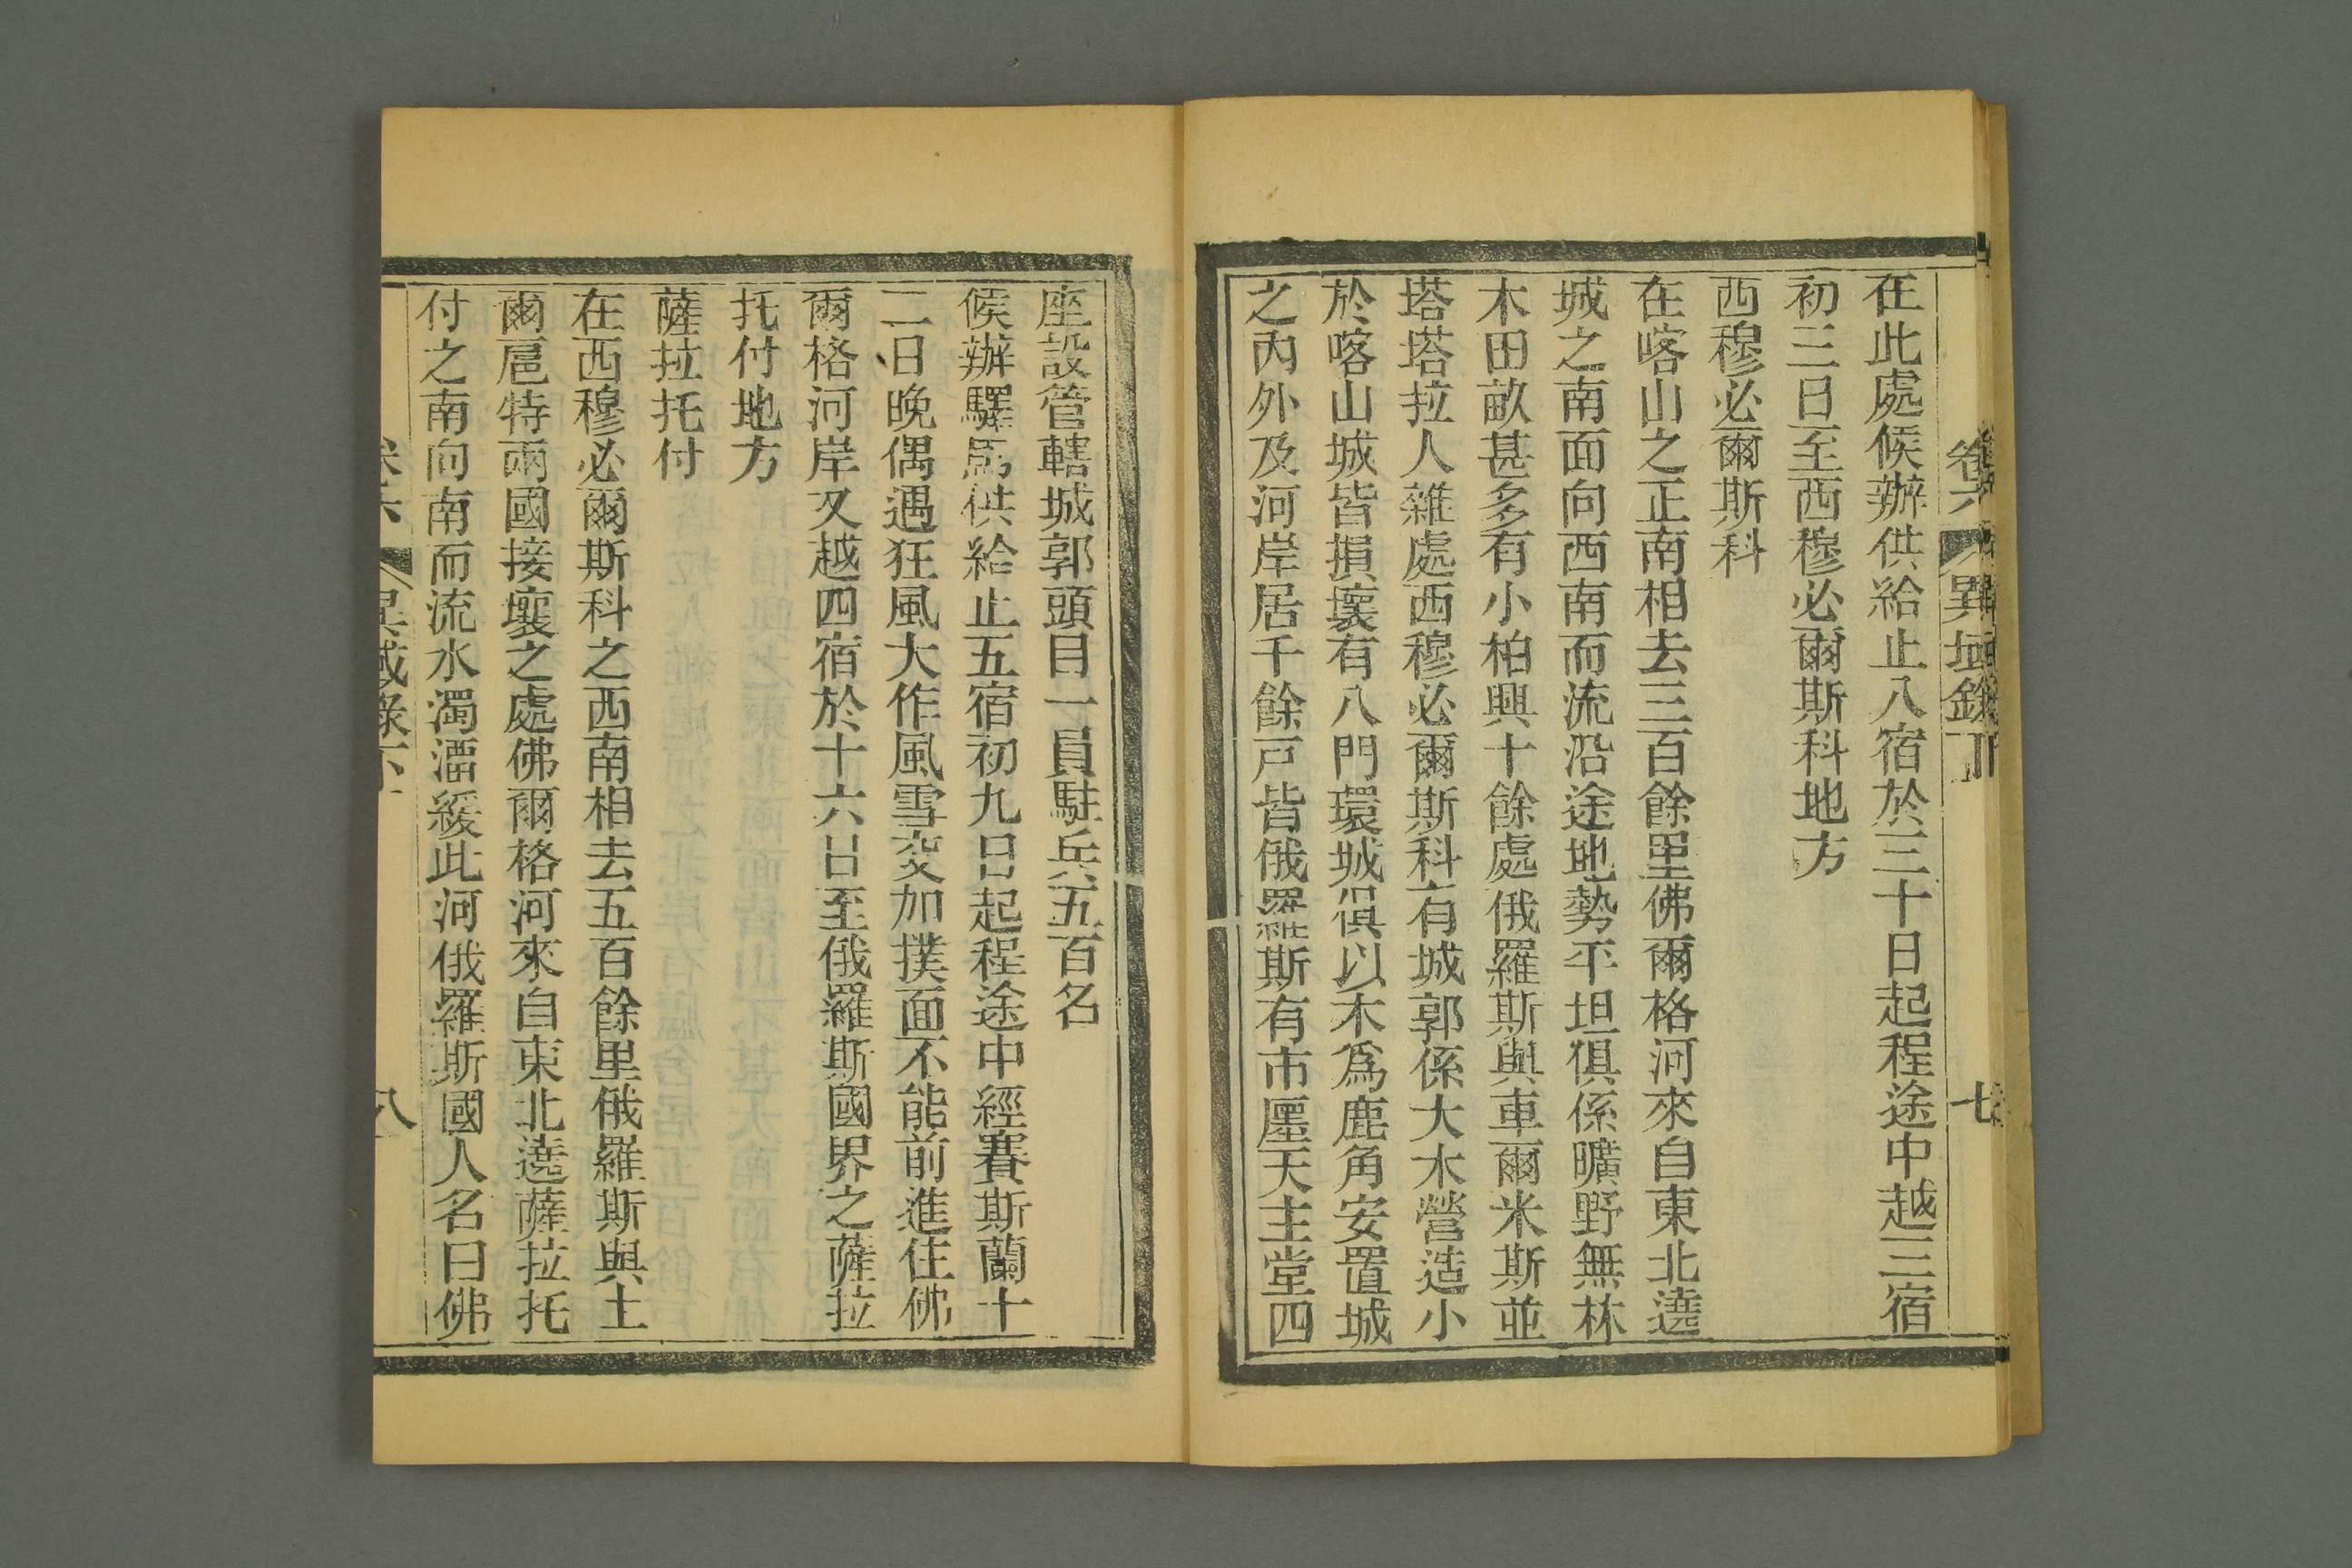 在此處候辦供給止八宿於三十日起程途中越三宿
初三日至西穆必爾斯科地方
西穆必爾斯科
在喀山之正南相去三百餘里佛爾格河來自東北遶
城之南面向西南而流沿途地勢平坦俱係曠野無林
木田畝甚多有小柏興十餘處俄羅斯與車爾米斯並
塔塔拉人雜處西穆必爾斯科有城郭係大木營造小
於喀山城皆損壞有八門環城俱以木為鹿角安置城
之內外及河岸居千餘戸皆俄羅斯有市廛天主堂四
座設管轄城郭頭目一員駐兵五百名
候辦驛馬供給止五宿初九日起程途中經賽斯蘭十
二日晚偶遇狂風大作風雪交加撲面不能前進住佛
爾格河岸又越四宿於十六日至俄羅斯國界之薩拉
托付地方
薩拉托付
在西穆必爾斯科之西南相去五百餘里俄羅斯與土
爾扈特兩國接壤之處佛爾格河來自東北遶薩拉托
付之南向南而流水濁溜緩此河俄羅斯國人名曰佛
卷六
異域錄下
八